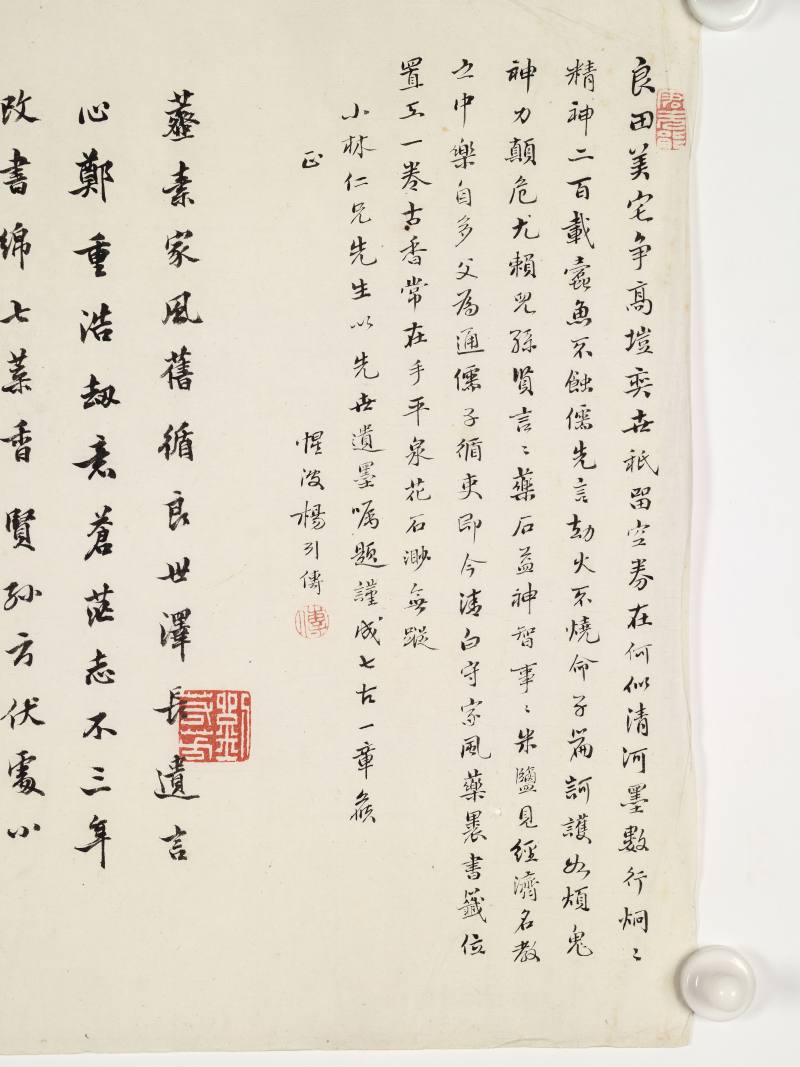 良田美宅争高塏奕世秖留空券在何似清河墨數行炯〻
精神二百載蠹魚不蝕儒先言劫火不燒命子篇訶護如煩鬼
神力顛危尤賴兒孫賢言〻藥石益神智事〻米鹽見經濟名教
之中樂自多父為通儒子循吏即今清白守家風藥裹書籤位
置工一卷古香常在手平泉花石渺無蹤
小林仁兄先生以先世遺墨嘱題謹成七古一章候
正
惺泼楊引傳
傳
虀素家風舊循良世澤長遺言
心鄭重浩劫意蒼茫志不三年
改書綿七葉香賢孫方伏處小